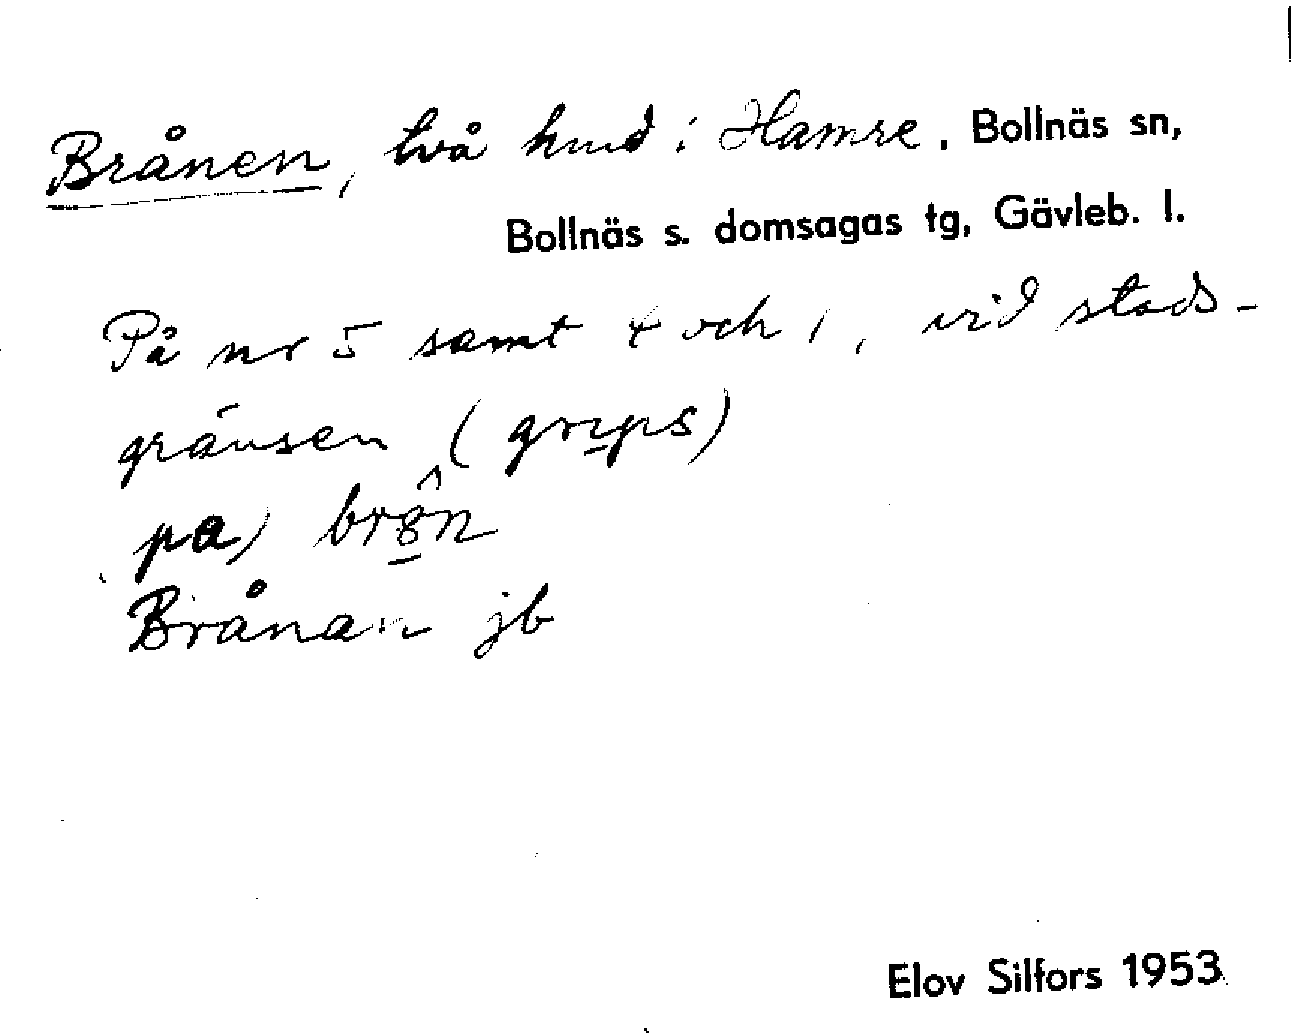 Brånen, två hmd i Hamre. Bollnäs sn,
Bollnäs s. domsagas tg, Gävleb. l.
På nr 5 samt 4 och 1, vid stads-
gränsen (grips)
pa) brôn
Brånan jb
Elov Silfors 1953